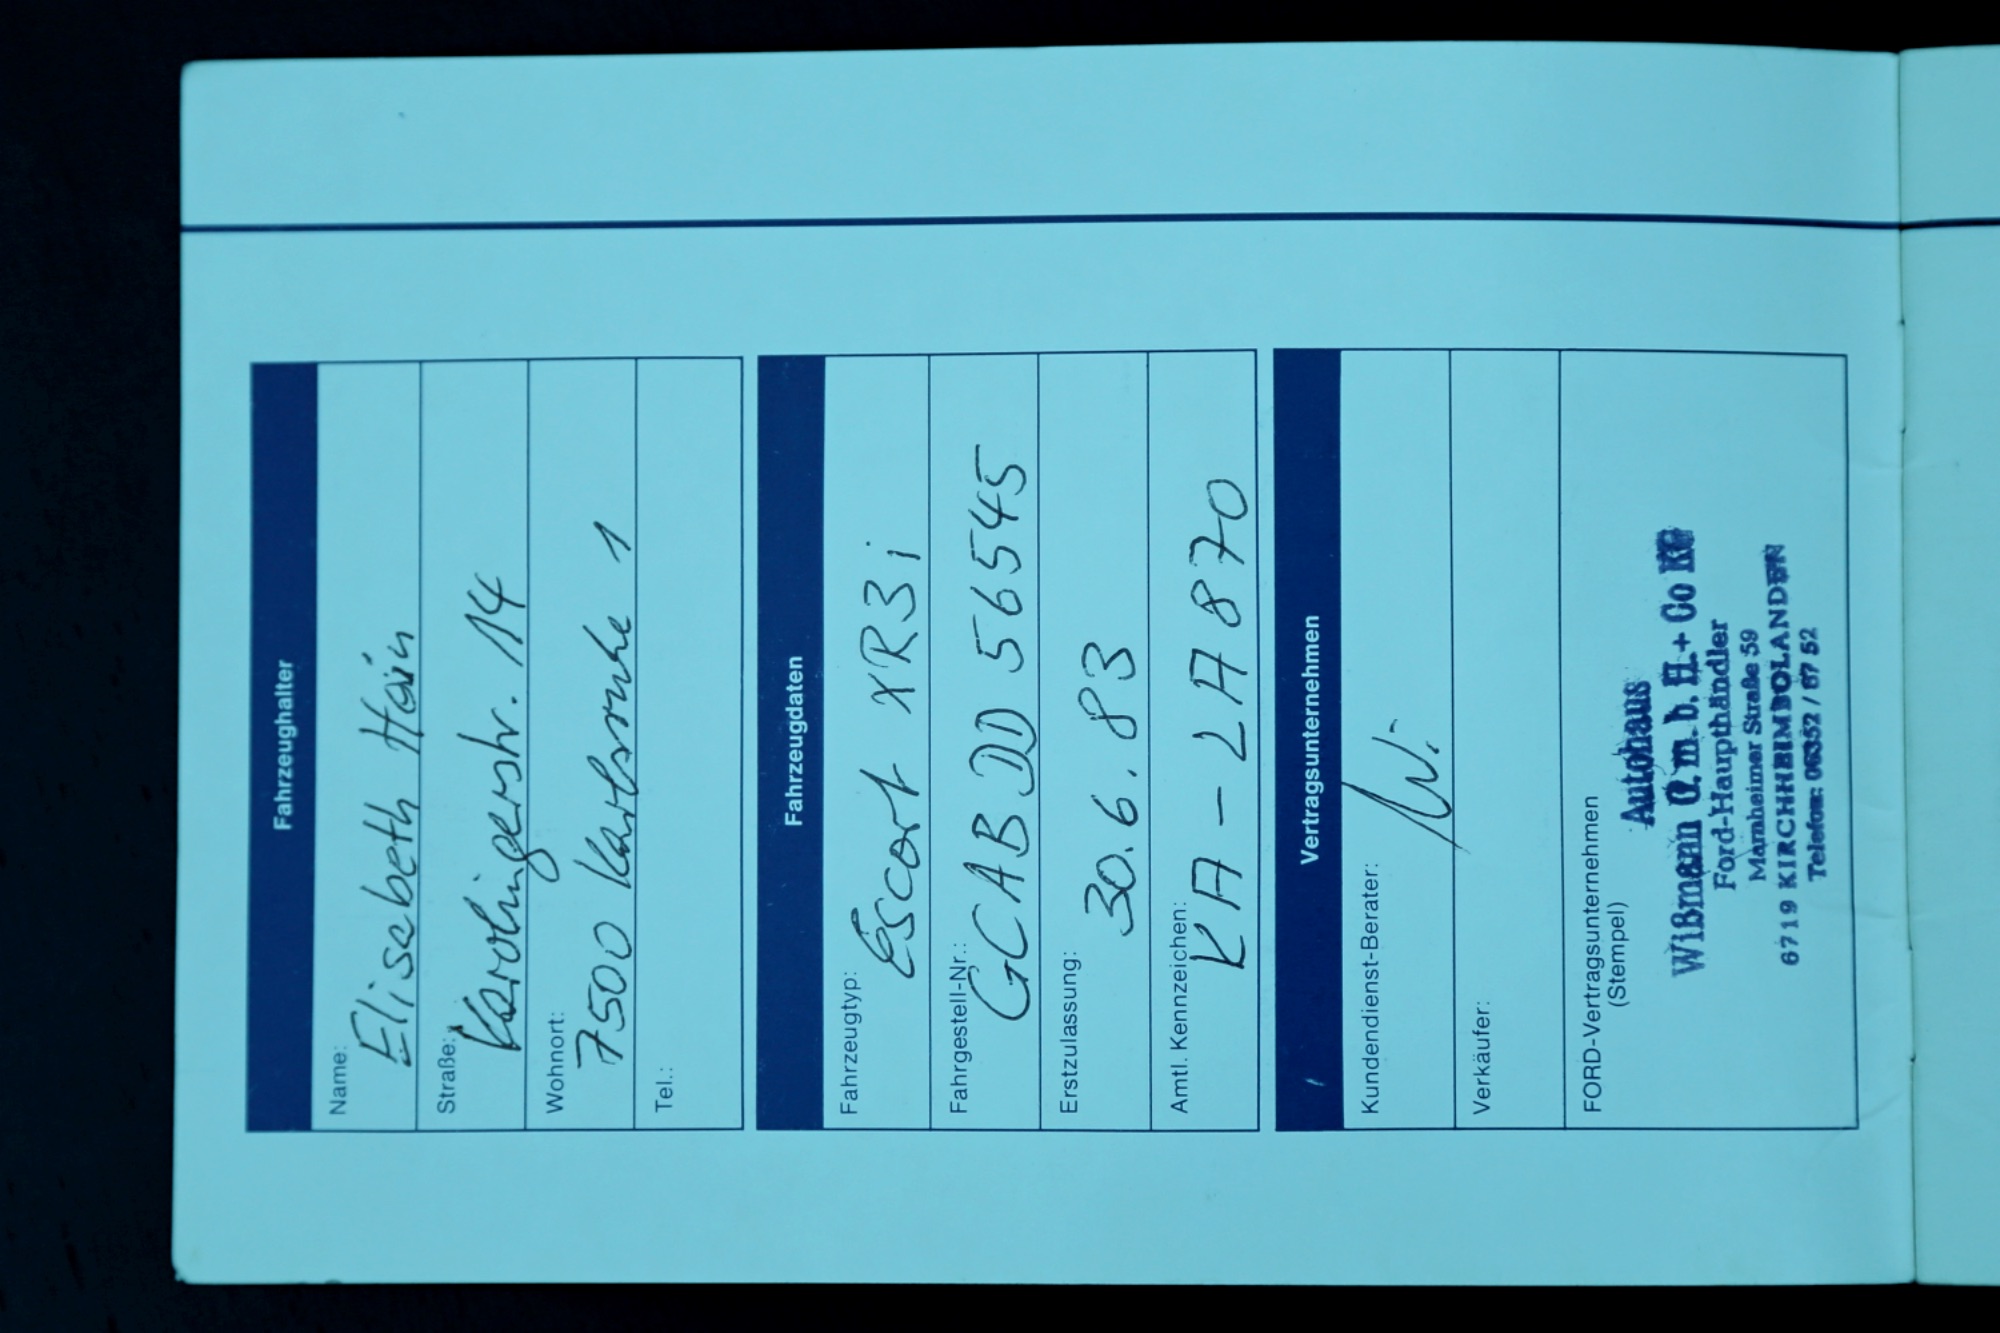 Fahrzeughalter
Name: Elisabeth Hain
Straße: Karolingerstr. 14
Wohnort: 7500 Karlsruhe 1
Tel.:
Fahrzeugdaten
Fahrzeugtyp: Escort XR3i
Fahrgestell-Nr.: GCAB DD 56545
Erstzulassung: 30.6.83
Amtl. Kennzeichen: KA - LA 870
Vertragsunternehmen
Kundendienst-Berater:
Verkäufer:
FORD-Vertragsunternehmen
(Stempel)
Autohaus
Wißmann G.m.b.H. + Co KG
Ford-Haupthändler
Marnheimer Straße 59
6719 KIRCHHEIMBOLANDEN
Telefon: 06352 / 67 52